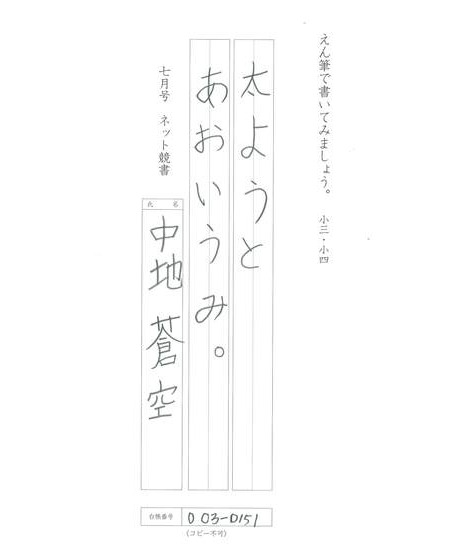 えん筆で書いてみましょう。 小三・小四
太ようと
あおいうみ。
七月号 ネット競書
氏 名
中地 蒼空
台帳番号 003-0151
(コピー不可)